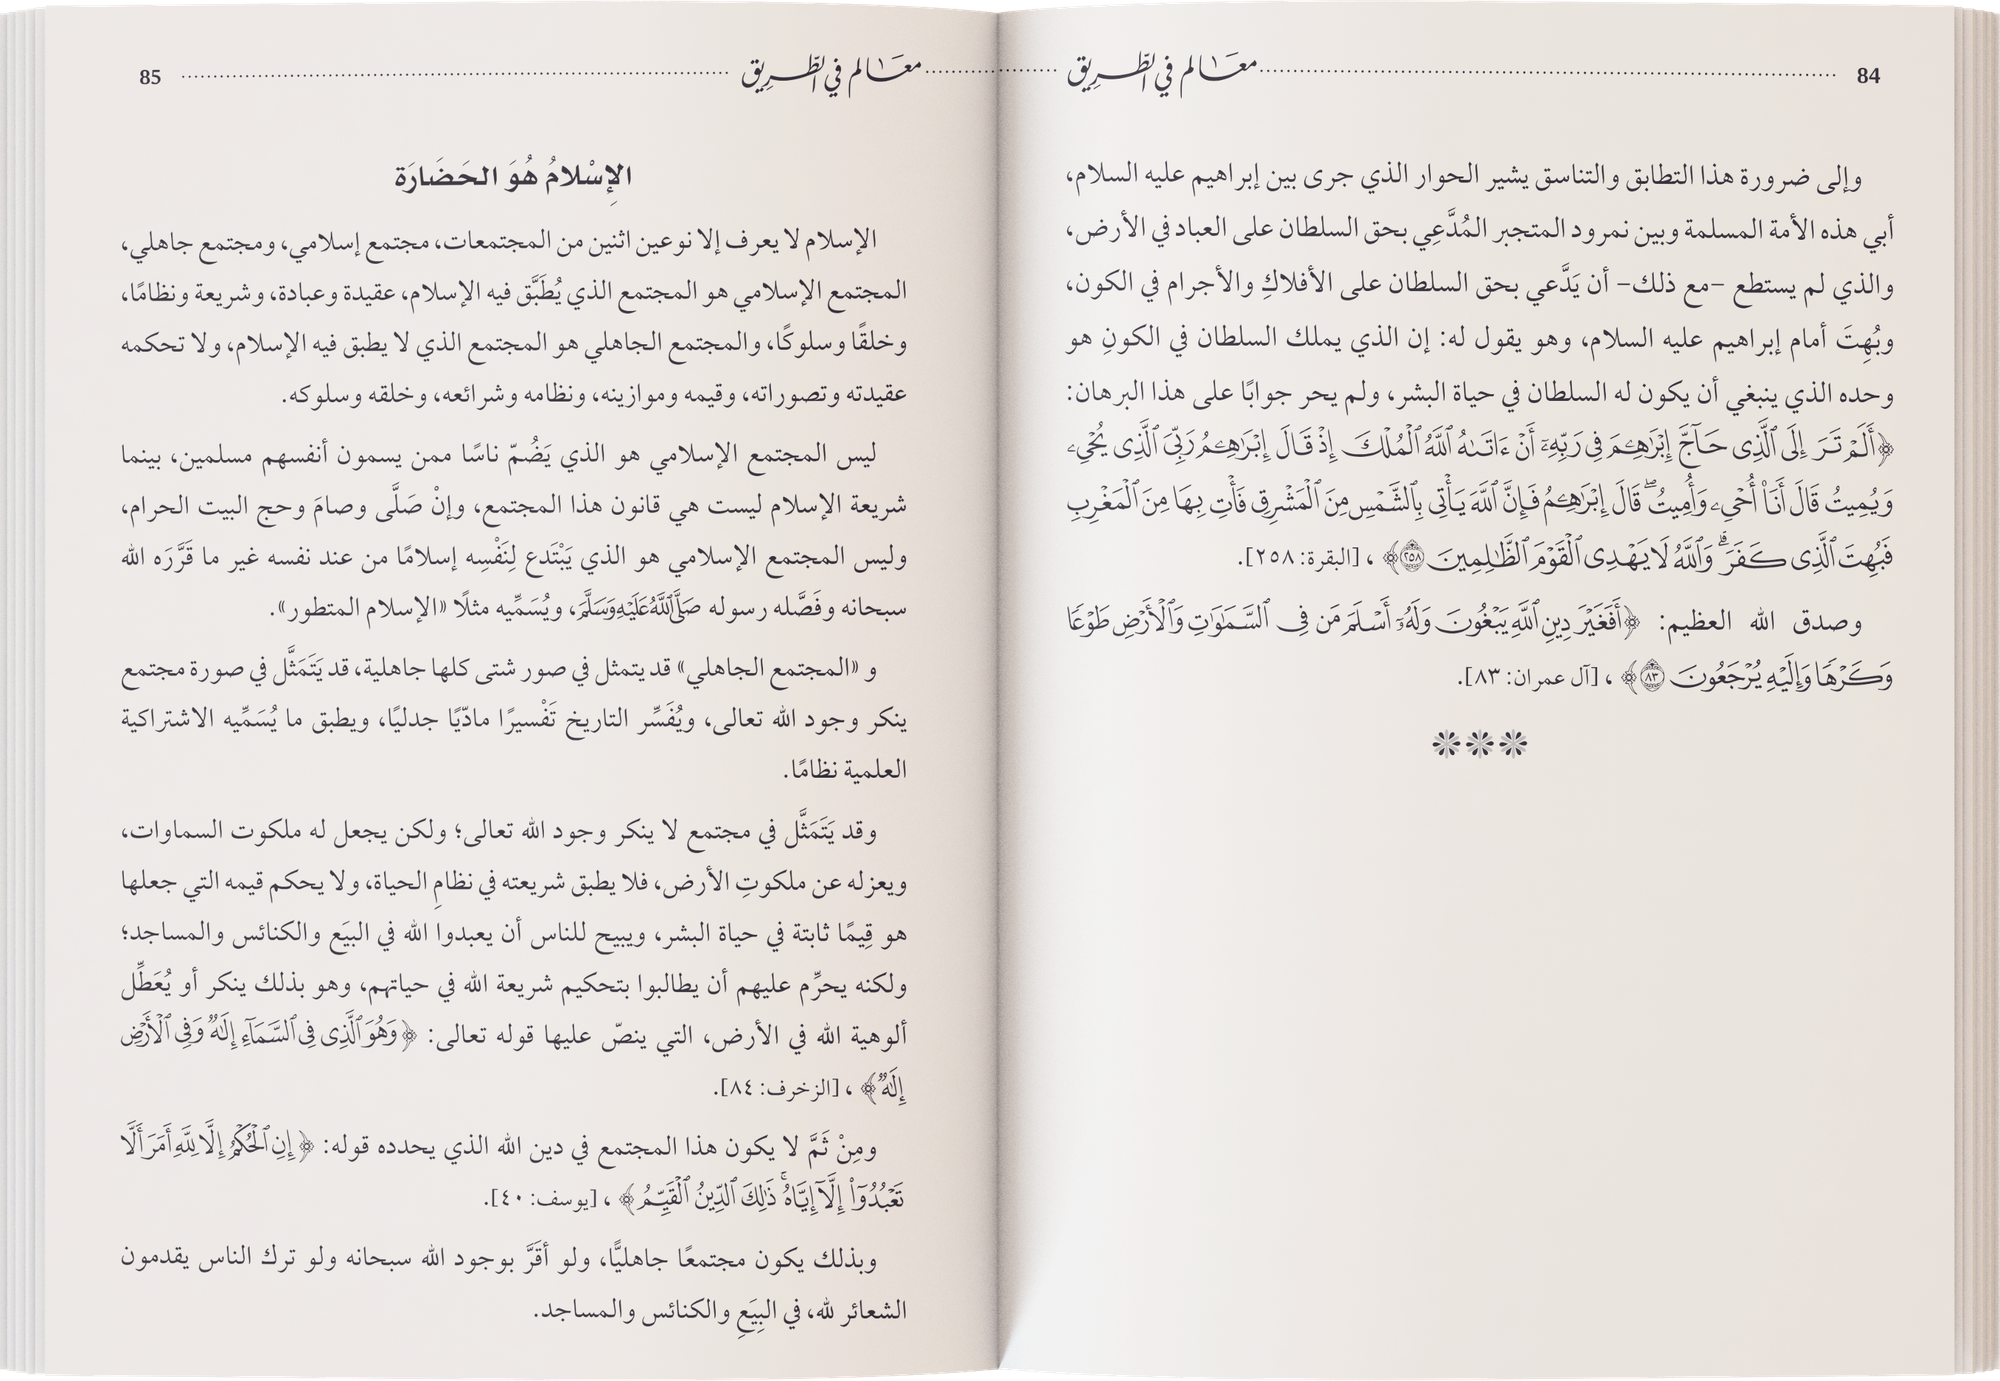 84 معالم في الطريق
وإلى ضرورة هذا التطابق والتناسق يشير الحوار الذي جرى بين إبراهيم عليه السلام،
أبي هذه الأمة المسلمة وبين نمرود المتجبر المُدَّعِي بحق السلطان على العباد في الأرض،
والذي لم يستطع –مع ذلك– أن يَدَّعي بحق السلطان على الأفلاكِ والأجرام في الكون،
وبُهِتَ أمام إبراهيم عليه السلام، وهو يقول له: إن الذي يملك السلطان في الكونِ هو
وحده الذي ينبغي أن يكون له السلطان في حياة البشر، ولم يحر جوابًا على هذا البرهان:
﴿أَلَمْ تَرَ إِلَى ٱلَّذِى حَآجَّ إِبْرَٰهِـۧمَ فِى رَبِّهِۦٓ أَنْ ءَاتَىٰهُ ٱللَّهُ ٱلْمُلْكَ إِذْ قَالَ إِبْرَٰهِـۧمُ رَبِّىَ ٱلَّذِى يُحْىِۦ
وَيُمِيتُ قَالَ أَنَا۠ أُحْىِۦ وَأُمِيتُ ۖ قَالَ إِبْرَٰهِـۧمُ فَإِنَّ ٱللَّهَ يَأْتِى بِٱلشَّمْسِ مِنَ ٱلْمَشْرِقِ فَأْتِ بِهَا مِنَ ٱلْمَغْرِبِ
فَبُهِتَ ٱلَّذِى كَفَرَ ۗ وَٱللَّهُ لَا يَهْدِى ٱلْقَوْمَ ٱلظَّٰلِمِينَ ٢٥٨﴾ ، [البقرة: ٢٥٨].
وصدق الله العظيم: ﴿أَفَغَيْرَ دِينِ ٱللَّهِ يَبْغُونَ وَلَهُۥٓ أَسْلَمَ مَن فِى ٱلسَّمَٰوَٰتِ وَٱلْأَرْضِ طَوْعًا
وَكَرْهًا وَإِلَيْهِ يُرْجَعُونَ ٨٣﴾ ، [آل عمران: ٨٣].
معالم في الطريق 85
الإِسْلامُ هُوَ الحَضَارَة
الإسلام لا يعرف إلا نوعين اثنين من المجتمعات، مجتمع إسلامي، ومجتمع جاهلي،
المجتمع الإسلامي هو المجتمع الذي يُطَبَّق فيه الإسلام، عقيدة وعبادة، وشريعة ونظامًا،
وخلقًا وسلوكًا، والمجتمع الجاهلي هو المجتمع الذي لا يطبق فيه الإسلام، ولا تحكمه
عقيدته وتصوراته، وقيمه وموازينه، ونظامه وشرائعه، وخلقه وسلوكه.
ليس المجتمع الإسلامي هو الذي يَضُمّ ناسًا ممن يسمون أنفسهم مسلمين، بينما
شريعة الإسلام ليست هي قانون هذا المجتمع، وإنْ صَلَّى وصامَ وحج البيت الحرام،
وليس المجتمع الإسلامي هو الذي يَبْتَدع لِنَفْسِه إسلامًا من عند نفسه غير ما قَرَّرَه الله
سبحانه وفَصَّله رسوله صَلَّى اللَّهُ عَلَيْهِ وَسَلَّمَ، ويُسَمِّيه مثلًا «الإسلام المتطور».
و «المجتمع الجاهلي» قد يتمثل في صور شتى كلها جاهلية، قد يَتَمَثَّل في صورة مجتمع
ينكر وجود الله تعالى، ويُفَسِّر التاريخ تَفْسيرًا مادّيًا جدليًا، ويطبق ما يُسَمِّيه الاشتراكية
العلمية نظامًا.
وقد يَتَمَثَّل في مجتمع لا ينكر وجود الله تعالى؛ ولكن يجعل له ملكوت السماوات،
ويعزله عن ملكوتِ الأرض، فلا يطبق شريعته في نظامِ الحياة، ولا يحكم قيمه التي جعلها
هو قِيمًا ثابتة في حياة البشر، ويبيح للناس أن يعبدوا الله في البيَع والكنائس والمساجد؛
ولكنه يحرِّم عليهم أن يطالبوا بتحكيم شريعة الله في حياتهم، وهو بذلك ينكر أو يُعَطِّل
ألوهية الله في الأرض، التي ينصّ عليها قوله تعالى: ﴿وَهُوَ ٱلَّذِى فِى ٱلسَّمَآءِ إِلَٰهٌ وَفِى ٱلْأَرْضِ
إِلَٰهٌ﴾ ، [الزخرف: ٨٤].
ومِنْ ثَمَّ لا يكون هذا المجتمع في دين الله الذي يحدده قوله: ﴿إِنِ ٱلْحُكْمُ إِلَّا لِلَّهِ أَمَرَ أَلَّا
تَعْبُدُوٓا۟ إِلَّآ إِيَّاهُ ۚ ذَٰلِكَ ٱلدِّينُ ٱلْقَيِّمُ﴾ ، [يوسف: ٤٠].
وبذلك يكون مجتمعًا جاهليًّا، ولو أقَرَّ بوجود الله سبحانه ولو ترك الناس يقدمون
الشعائر لله، في البِيَعِ والكنائس والمساجد.